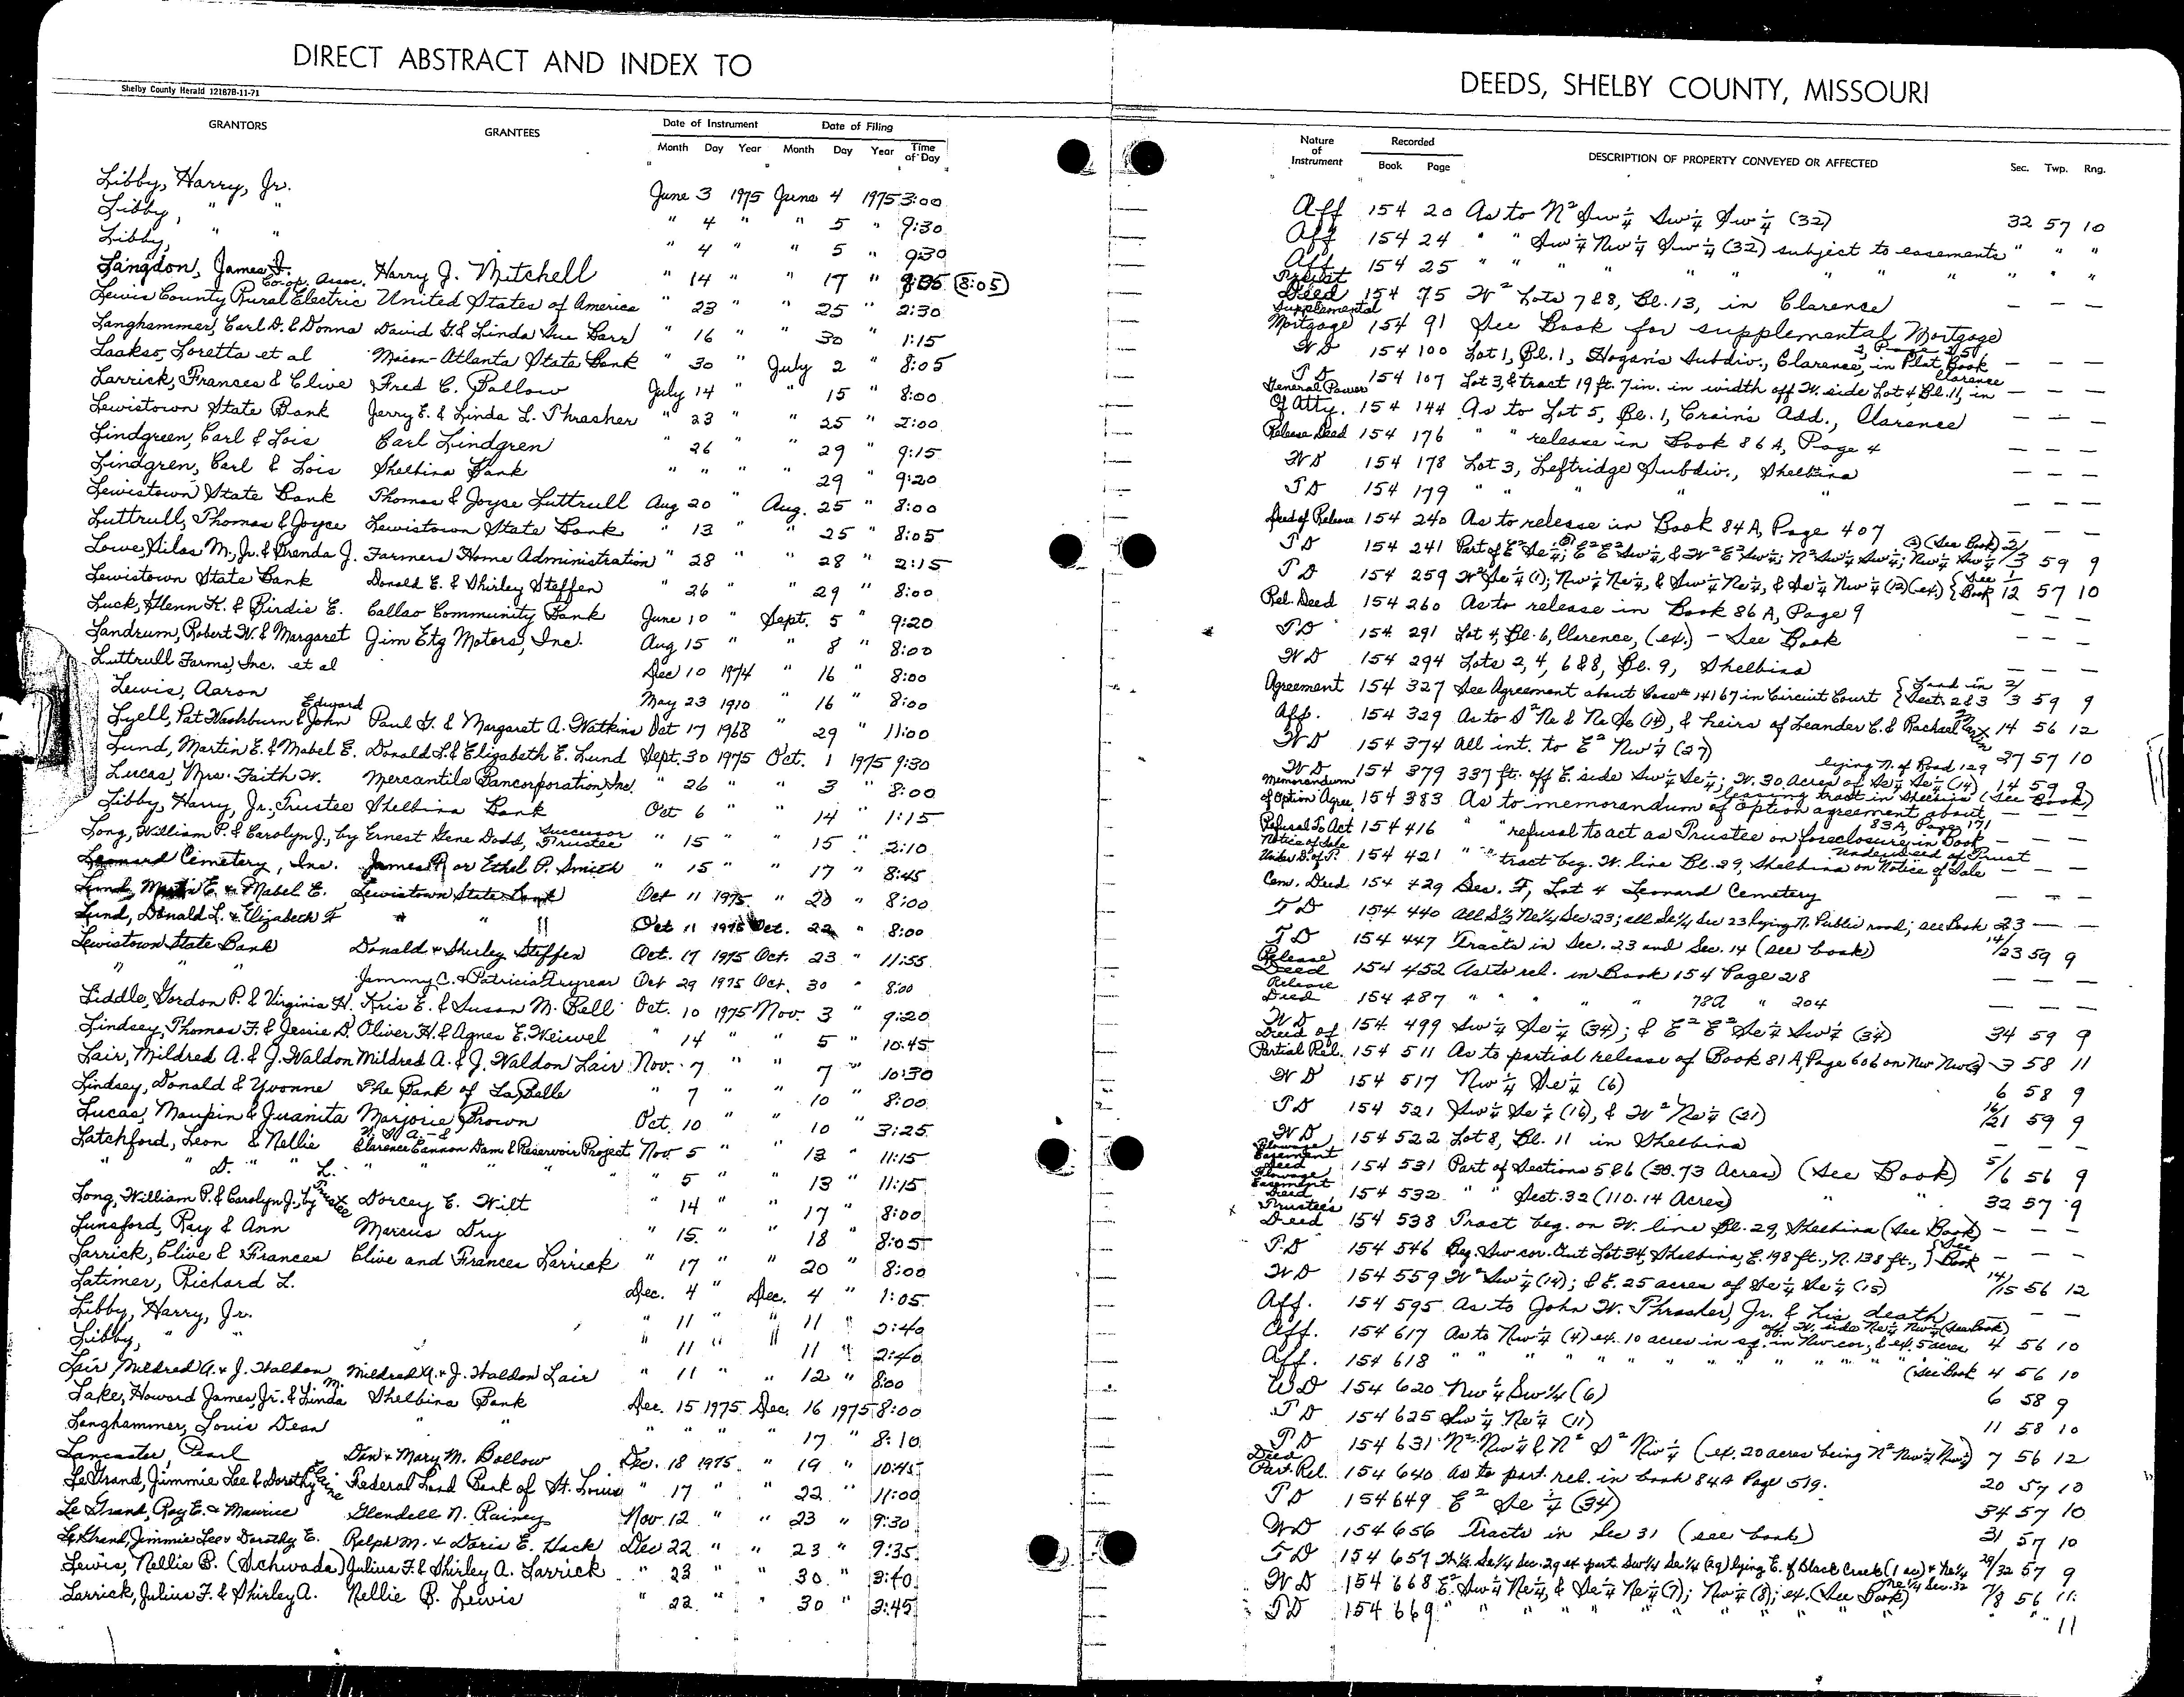 DIRECT ABSTRACT AND INDEX TO
Shelby County Herald 121878-11-71
GRANTORS GRANTEES Date of Instrument Date of Filing
Month Day Year Month Day Year Time of Day
Libby, Harry, Jr. June 3 1975 June 4 1975 3:00
Libby, " " " 4 " " 5 " 9:30
Libby, " " " 4 " " 5 " 9:30
Langdon, James J. Harry J. Mitchell " 14 " " 17 " 8:05 (8:05)
Lewis County Rural Electric Co-op. Assoc. United States of America " 23 " " 25 " 2:30
Langhammer, Carl D. & Donna David G. & Linda Sue Barr " 16 " " 30 " 1:15
Laakso, Loretta et al Macon-Atlanta State Bank " 30 " July 2 " 8:05
Larrick, Frances & Clive Fred C. Bollow July 14 " " 15 " 8:00
Lewistown State Bank Jerry E. & Linda L. Thrasher " 23 " " 25 " 2:00
Lindgreen, Carl & Lois Carl Lindgren " 26 " " 29 " 9:15
Lindgren, Carl & Lois Shelbina Bank " " " 29 " 9:20
Lewistown State Bank Thomas & Joyce Luttrull Aug 20 " Aug. 25 " 8:00
Luttrull, Thomas & Joyce Lewistown State Bank " 13 " " 25 " 8:05
Lowe, Silas M., Jr. & Brenda J. Farmers Home Administration " 28 " " 28 " 2:15
Lewistown State Bank Donald E. & Shirley Steffen " 26 " " 29 " 8:00
Luck, Glenn K. & Birdie E. Callao Community Bank June 10 " Sept. 5 " 9:20
Landrum, Robert W. & Margaret Jim Etg Motors, Inc. Aug 15 " " 8 " 8:00
Luttrull Farms, Inc. et al Dec 10 1974 " 16 " 8:00
Lewis, Aaron May 23 1910 " 16 " 8:00
Lyell, Pat Washburn & John Edward Paul G. & Margaret A. Watkins Oct 17 1968 " 29 " 11:00
Lund, Martin E. & Mabel E. Donald L. & Elizabeth E. Lund Sept. 30 1975 Oct. 1 1975 9:30
Lucas, Mrs. Faith W. Mercantile Bancorporation, Inc. " 26 " " 3 " 8:00
Libby, Harry, Jr., Trustee Shelbina Bank Oct 6 " " 14 " 1:15
Long, William P. & Carolyn J., by Ernest Gene Dodd, Successor Trustee " 15 " " 15 " 2:10
Leonard Cemetery, Inc. James R or Ethel P. Smith " 15 " " 17 " 8:45
Lund, Martin E. & Mabel E. Lewistown State Bank Oct 11 1975 " 20 " 8:00
Lund, Donald L. & Elizabeth F " " " Oct 11 1975 Oct. 22 " 8:00
Lewistown State Bank Donald & Shirley Steffen Oct. 17 1975 Oct. 23 " 11:55
" " " Jammy C. & Patricia Puryear Oct 29 1975 Oct. 30 " 8:00
Liddle, Gordon P. & Virginia H. Kris E. & Susan M. Bell Oct. 10 1975 Nov. 3 " 9:20
Lindsey, Thomas F. & Jessie D. Oliver H. & Agnes E. Weiwel " 14 " " 5 " 10:45
Lair, Mildred A. & J. Waldon Mildred A. & J. Waldon Lair Nov. 7 " " 7 " 10:30
Lindsey, Donald & Yvonne The Bank of LaBelle " 7 " " 10 " 8:00
Lucas, Maupin & Juanita Marjorie Brown Oct. 10 " " 10 " 3:25
Latchford, Leon & Nellie U.S.A. - & Clarence Cannon Dam & Reservoir Project Nov 5 " " 13 " 11:15
" D. " " L. " " " " " " 5 " " 13 " 11:15
Long, William P. & Carolyn J., by Trustee Dorcey E. Wilt " 14 " " 17 " 8:00
Lunsford, Ray & Ann Marcus Dry " 15 " " 18 " 8:05
Larrick, Clive & Frances Clive and Frances Larrick " 17 " " 20 " 8:00
Latimer, Richard L. Dec. 4 " Dec. 4 " 1:05
Libby, Harry, Jr. " 11 " " 11 " 2:40
Libby, " " " 11 " " 11 " 2:40
Lair Mildred A. & J. Waldon Mildred A. & J. Waldon Lair " 11 " " 12 " 8:00
Lake, Howard James, Jr. & Linda M. Shelbina Bank Dec. 15 1975 Dec. 16 1975 8:00
Langhammer, Louis Dean " " " " " " 17 " 8:10
Lancaster, Pearl Dan & Mary M. Bollow Dec. 18 1975 " 19 " 10:45
LeGrand, Jimmie Lee & Dorothy Federal Land Bank of St. Louis " 17 " " 22 " 11:00
Le Grand, Roy E. & Maurice Glendell N. Rainey Nov. 12 " " 23 " 9:30
LeGrand, Jimmie Lee & Dorothy E. Ralph M. & Doris E. Hack Dec 22 " " 23 " 9:35
Lewis, Nellie B. (Schwada) Julius F. & Shirley A. Larrick " 23 " " 30 " 3:40
Larrick, Julius F. & Shirley A. Nellie B. Lewis " 22 " " 30 " 3:45
DEEDS, SHELBY COUNTY, MISSOURI
Nature of Instrument Recorded DESCRIPTION OF PROPERTY CONVEYED OR AFFECTED Sec. Twp. Rng.
Book Page
Aff 154 20 As to N² Sw¼ Sw¼ Sw¼ (32) 32 57 10
Aff 154 24 " " Sw¼ Nw¼ Sw¼ (32) subject to easements " " "
Aff 154 25 " " " " " " " " " "
Trust Deed 154 75 W² Lots 7&8, Bl. 13, in Clarence — — —
Supplemental Mortgage 154 91 See Book for supplemental Mortgage
WD 154 100 Lot 1, Bl. 1, Hogan's Subdiv., Clarence, in Plat Book — — —
TD 154 107 Lot 3, & tract 19 ft. 7 in. in width off W. side Lot 4, Bl. 11, in Clarence — — —
General Power Of Atty. 154 144 As to Lot 5, Bl. 1, Crain's Add., Clarence — — —
Release Deed 154 176 " " release in Book 86 A, Page 4 — — —
WD 154 178 Lot 3, Leftridge Subdiv., Shelbina — — —
TD 154 179 " " " " — — —
Deed of Release 154 240 As to release in Book 84 A, Page 407 — — —
TD 154 241 Part of E² Se¼; E² E² Sw¼, & W² E² Sw¼; N² Sw¼ Sw¼; Nw¼ Sw¼ (2) (See Book) 2/3 59 9
TD 154 259 W² Se¼ (1); Nw¼ Ne¼, & Sw¼ Ne¼, & Se¼ Nw¼ (12) (ex.) {See Book 1/12 57 10
Rel. Deed 154 260 As to release in Book 86 A, Page 9 — — —
TD 154 291 Lot 4, Bl. 6, Clarence, (ex.) - See Book — — —
WD 154 294 Lots 2, 4, 6 & 8, Bl. 9, Shelbina — — —
Agreement 154 327 See Agreement about Case # 14167 in Circuit Court {Land in Sect. 2 & 3 2/3 59 9
Aff. 154 329 As to S² Ne & Ne Se (14), & heirs of Leander C. & Rachael 14 56 12
WD 154 374 All int. to E² Nw¼ (27) 27 57 10
WD 154 379 337 ft. off E. side Sw¼ Se¼; W. 30 Acres of Se¼ Se¼ (14) lying N. of Road 129 14 59 9
Memorandum of Option Agree. 154 383 As to memorandum of option agreement about leasing tract in Shelbina (See Book) — — —
Refusal To Act 154 416 " " refusal to act as Trustee on foreclosure in Book 83A, Page 171 — — —
Notice of Sale Under D. of T. 154 421 " " tract beg. W. line Bl. 29, Shelbina on Notice of Sale Under Deed of Trust — — —
Cem. Deed 154 429 Sec. F, Lot 4 Leonard Cemetery
TD 154 440 All S½ Ne¼ Sec 23; all Se¼ Sec 23 lying N. Public road; see Book 23 — —
TD 154 447 Tracts in Sec. 23 and Sec. 14 (see book) 14/23 59 9
Release Deed 154 452 As to rel. in Book 154 Page 218 — — —
Release Deed 154 487 " " " " " 78A " 204 — — —
WD 154 499 Sw¼ Se¼ (34); & E² E² Se¼ Sw¼ (34) 34 59 9
Deed of Partial Rel. 154 511 As to partial release of Book 81 A, Page 606 on Nw Nw (3) 3 58 11
WD 154 517 Nw¼ Se¼ (6) 6 58 9
TD 154 521 Sw¼ Se¼ (16), & W² Ne¼ (21) 16/21 59 9
WD 154 522 Lot 8, Bl. 11 in Shelbina — — —
Flowage Easement Deed 154 531 Part of Sections 5 & 6 (30.73 Acres) (See Book) 5/6 56 9
Flowage Easement Deed 154 532 " " Sect. 32 (110.14 Acres) " " 32 57 9
Trustees Deed 154 538 Tract beg. on W. line Bl. 29, Shelbina (See Book) — — —
TD 154 546 Beg. Sw cor. Out Lot 34, Shelbina, E. 198 ft., N. 138 ft., } See Book — — —
WD 154 559 W² Sw¼ (14); & E. 25 acres of Se¼ Se¼ (15) 14/15 56 12
Aff. 154 595 As to John W. Thrasher, Jr. & his death — — —
Aff. 154 617 As to Nw¼ (4) ex. 10 acres in sq. in Nw cor., & ex. 5 acres off W. side Ne¼ Nw¼ (see Book) 4 56 10
Aff. 154 618 " " " " " " " " " " (see Book 4 56 10
WD 154 620 Nw¼ Sw¼ (6) 6 58 9
TD 154 625 Sw¼ Ne¼ (11) 11 58 10
TD 154 631 N² Nw¼ & N² S² Nw¼ (ex. 20 acres being N² Nw¼ Nw¼) 7 56 12
Deed Part. Rel. 154 640 As to part. rel. in book 84A Page 519. 20 57 10
TD 154 649 E² Se¼ (34) 34 57 10
WD 154 656 Tracts in Sec 31 (see book) 31 57 10
TD 154 657 W½ Se¼ Sec. 29 ex part Sw¼ Se¼ (29) lying E. of Black Creek (1 ac) & Ne¼ Ne¼ Sec. 32 29/32 57 9
WD 154 668 E² Sw¼ Ne¼, & Se¼ Ne¼ (7); Nw¼ (8); ex. (See Book) 7/8 56 11
TD 154 669 " " " " " " " " " " 11